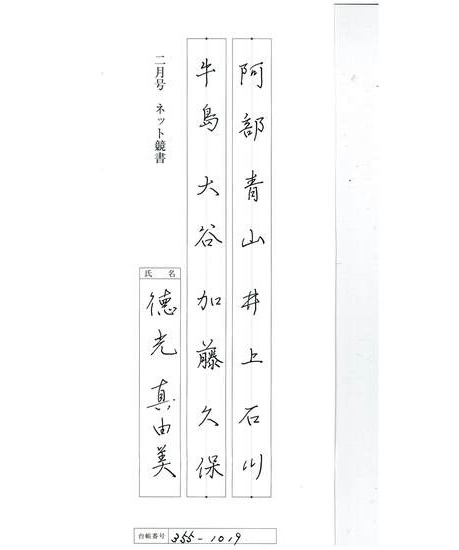 阿部青山井上石川
牛島大谷加藤久保
二月号 ネット競書
氏名
徳光真由美
台帳番号 355-1019